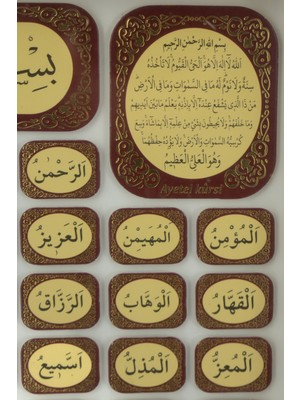 بِسْ
بِسْمِ اللهِ الرَّحْمٰنِ الرَّحِيمِ
اَللهُ لَا اِلٰهَ اِلَّا هُوَ الْحَيُّ الْقَيُّومُ لَا تَأْخُذُهُ
سِنَةٌ وَلَا نَوْمٌ لَهُ مَا فِي السَّمٰوَاتِ وَمَا فِي الْاَرْضِ
مَنْ ذَا الَّذِي يَشْفَعُ عِنْدَهُ اِلَّا بِاِذْنِهِ يَعْلَمُ مَا بَيْنَ اَيْدِيهِمْ
وَمَا خَلْفَهُمْ وَلَا يُحِيطُونَ بِشَيْءٍ مِنْ عِلْمِهِ اِلَّا بِمَا شَاءَ وَسِعَ
كُرْسِيُّهُ السَّمٰوَاتِ وَالْاَرْضَ وَلَا يَؤُدُهُ حِفْظُهُمَا
وَهُوَ الْعَلِيُّ الْعَظِيمُ
Ayetel kürsi
اَلرَّحْمٰنُ
اَلْمُؤْمِنُ اَلْمُهَيْمِنُ اَلْعَزِيزُ
اَلْقَهَّارُ اَلْوَهَّابُ اَلرَّزَّاقُ
اَلْمُعِزُّ اَلْمُذِلُّ اَسَّمِيعُ